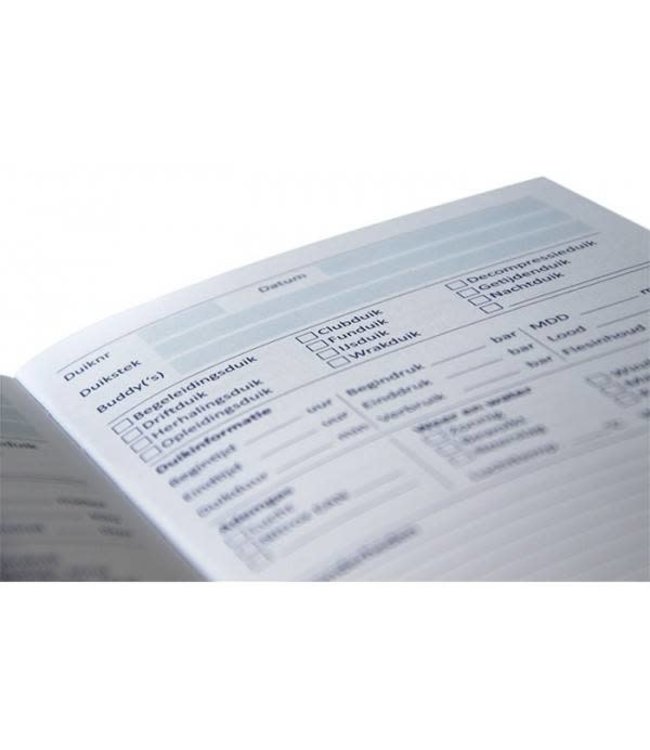 Duiknr Datum
Duikstek
Buddy('s)
Begeleidingsduik Clubduik Decompressieduik
Driftduik Funduik Getijdenduik
Herhalingsduik IJsduik Nachtduik
Opleidingsduik Wrakduik
Duikinformatie
Begintijd uur Begindruk bar MDD m
Eindtijd uur Einddruk bar Lood
Duikduur min Verbruik Flesinhoud
Weer en water
Zonnig
Ademgas